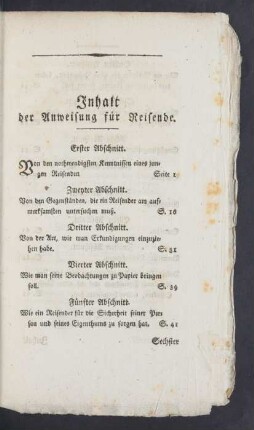 Inhalt
der Anweisung für Reisende.
Erster Abschnitt.
Von den nothwendigsten Kenntnissen eines jun-
gen Reisenden Seite 1
Zweyter Abschnitt.
Von den Gegenständen, die ein Reisender am auf-
merksamsten untersuchen muß. S. 16
Dritter Abschnitt.
Von der Art, wie man Erkundigungen einzuzie-
hen habe. S. 21
Vierter Abschnitt.
Wie man seine Beobachtungen zu Papier bringen
soll. S. 29
Fünfter Abschnitt.
Wie ein Reisender für die Sicherheit seiner Per-
son und seines Eigenthums zu sorgen hat. S. 41
Sechster